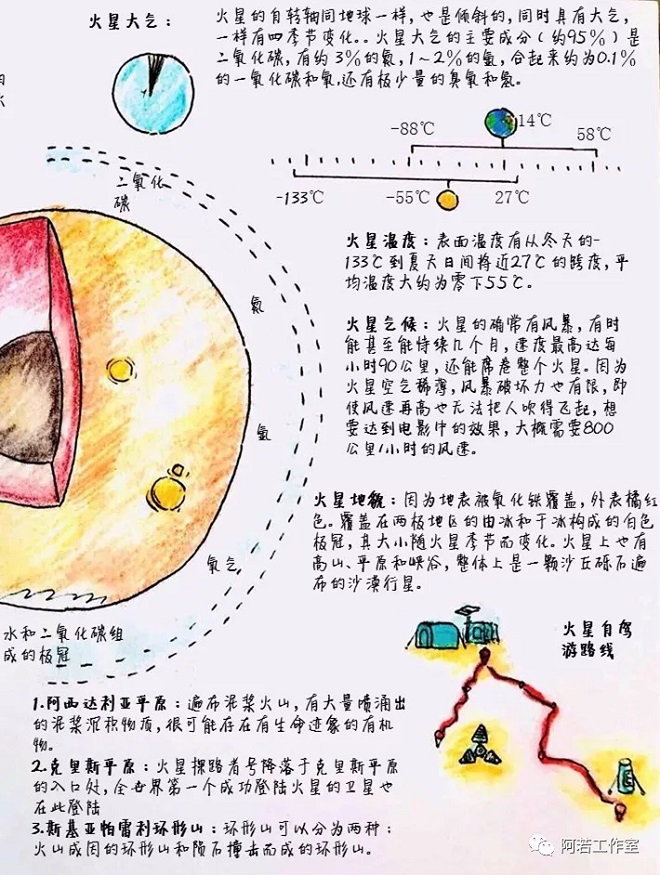 火星大气：
火星的自转轴同地球一样，也是倾斜的，同时具有大气，
一样有四季节变化。。火星大气的主要成分（约95%）是
二氧化碳，有约3%的氮，1~2%的氩，合起来约为0.1%
的一氧化碳和氧，还有极少量的臭氧和氢。
14℃
-88℃
58℃
-133℃
-55℃
27℃
二氧化
碳
火星温度：表面温度有从冬天的-
133℃到夏天日间将近27℃的跨度，平
均温度大约为零下55℃。
氮
火星气候：火星的确常有风暴，有时
能甚至能持续几个月，速度最高达每
小时90公里，还能席卷整个火星。因为
火星空气稀薄，风暴破坏力也有限，即
使风速再高也无法把人吹得飞起，想
要达到电影中的效果，大概需要800
公里/小时的风速。
氩
火星地貌：因为地表被氧化铁覆盖，外表橘红
色。覆盖在两极地区的由冰和干冰构成的白色
极冠，其大小随火星季节而变化。火星上也有
高山、平原和峡谷，整体上是一颗沙丘砾石遍
布的沙漠行星。
氧气
水和二氧化碳组
成的极冠
火星自驾
游路线
1.阿西达利亚平原：遍布泥浆火山，有大量喷涌出
的泥浆沉积物质，很可能存在有生命迹象的有机
物。
2.克里斯平原：火星探路者号降落于克里斯平原
的入口处，全世界第一个成功登陆火星的卫星也
在此登陆
3.斯基亚帕雷利环形山：环形山可以分为两种：
火山成因的环形山和陨石撞击而成的环形山。
阿若工作室